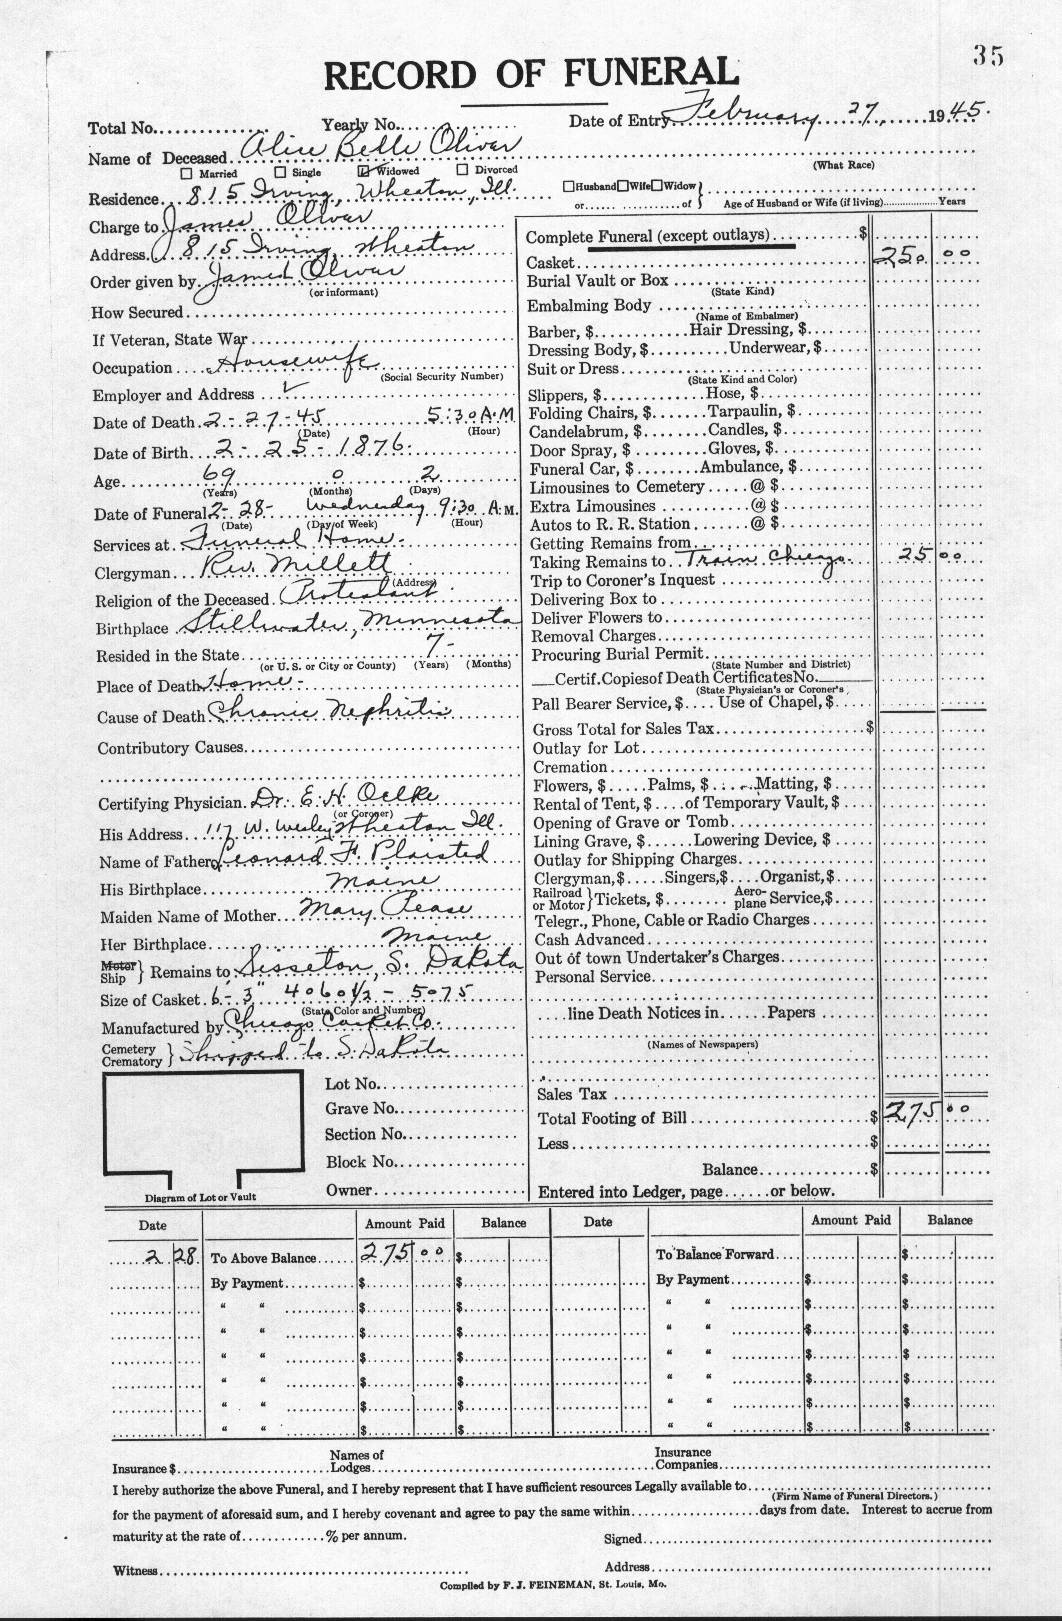 35
RECORD OF FUNERAL
Total No. Yearly No. Date of Entry February 27, 1945.
Name of Deceased Alice Belle Oliver
(What Race)
Married Single Widowed Divorced
Residence 815 Irving, Wheaton, Ill. Husband Wife Widow
or of Age of Husband or Wife (if living) Years
Charge to James Oliver
Address 815 Irving, Wheaton
Order given by James Oliver
(or informant)
How Secured
If Veteran, State War
Occupation Housewife
(Social Security Number)
Employer and Address ✓
Date of Death 2-27-45 5:30 A.M
(Date) (Hour)
Date of Birth 2-25-1876.
Age 69 0 2
(Years) (Months) (Days)
Date of Funeral 2-28- Wednesday 9:30 A.M.
(Date) (Day of Week) (Hour)
Services at Funeral Home.
Clergyman Rev. Millett
(Address)
Religion of the Deceased Protestant
Birthplace Stillwater, Minnesota
Resided in the State 7-
(or U. S. or City or County) (Years) (Months)
Place of Death Home-
Cause of Death Chronic Nephritis
Contributory Causes
Certifying Physician Dr. E. H. Oelke
(or Coroner)
His Address 117 W. Wesley Wheaton Ill.
Name of Father Leonard F. Plaisted
His Birthplace Maine
Maiden Name of Mother Mary Pease
Her Birthplace Maine
Motor
Ship } Remains to Sisseton, S. Dakota
Size of Casket 6'-3" 4060½ - 5075
(State Color and Number)
Manufactured by Chicago Casket Co.
Cemetery
Crematory } Shipped to S. Dakota
Lot No.
Grave No.
Section No.
Block No.
Owner
Diagram of Lot or Vault
Complete Funeral (except outlays) $
Casket 250. 00
Burial Vault or Box
(State Kind)
Embalming Body
(Name of Embalmer)
Barber, $ Hair Dressing, $
Dressing Body, $ Underwear, $
Suit or Dress
(State Kind and Color)
Slippers, $ Hose, $
Folding Chairs, $ Tarpaulin, $
Candelabrum, $ Candles, $
Door Spray, $ Gloves, $
Funeral Car, $ Ambulance, $
Limousines to Cemetery @ $
Extra Limousines @ $
Autos to R. R. Station @ $
Getting Remains from
Taking Remains to Train Chicago. 25 00
Trip to Coroner's Inquest
Delivering Box to
Deliver Flowers to
Removal Charges
Procuring Burial Permit
(State Number and District)
Certif. Copies of Death Certificates No.
(State Physician's or Coroner's
Pall Bearer Service, $ Use of Chapel, $
Gross Total for Sales Tax $
Outlay for Lot
Cremation
Flowers, $ Palms, $ Matting, $
Rental of Tent, $ of Temporary Vault, $
Opening of Grave or Tomb
Lining Grave, $ Lowering Device, $
Outlay for Shipping Charges
Clergyman, $ Singers, $ Organist, $
Railroad
or Motor } Tickets, $ Aero-
plane Service, $
Telegr., Phone, Cable or Radio Charges
Cash Advanced
Out of town Undertaker's Charges
Personal Service
line Death Notices in Papers
(Names of Newspapers)
Sales Tax
Total Footing of Bill $ 275 00
Less $
Balance $
Entered into Ledger, page or below.
Date Amount Paid Balance Date Amount Paid Balance
2 28 To Above Balance 275 00 $ To Balance Forward $
By Payment $ $ By Payment $ $
" " $ $ " " $ $
" " $ $ " " $ $
" " $ $ " " $ $
" " $ $ " " $ $
" " $ $ " " $ $
" " $ $ " " $ $
Insurance $ Names of
Lodges Insurance
Companies
I hereby authorize the above Funeral, and I hereby represent that I have sufficient resources Legally available to
(Firm Name of Funeral Directors.)
for the payment of aforesaid sum, and I hereby covenant and agree to pay the same within days from date. Interest to accrue from
maturity at the rate of % per annum. Signed
Witness Address
Compiled by F. J. FEINEMAN, St. Louis, Mo.